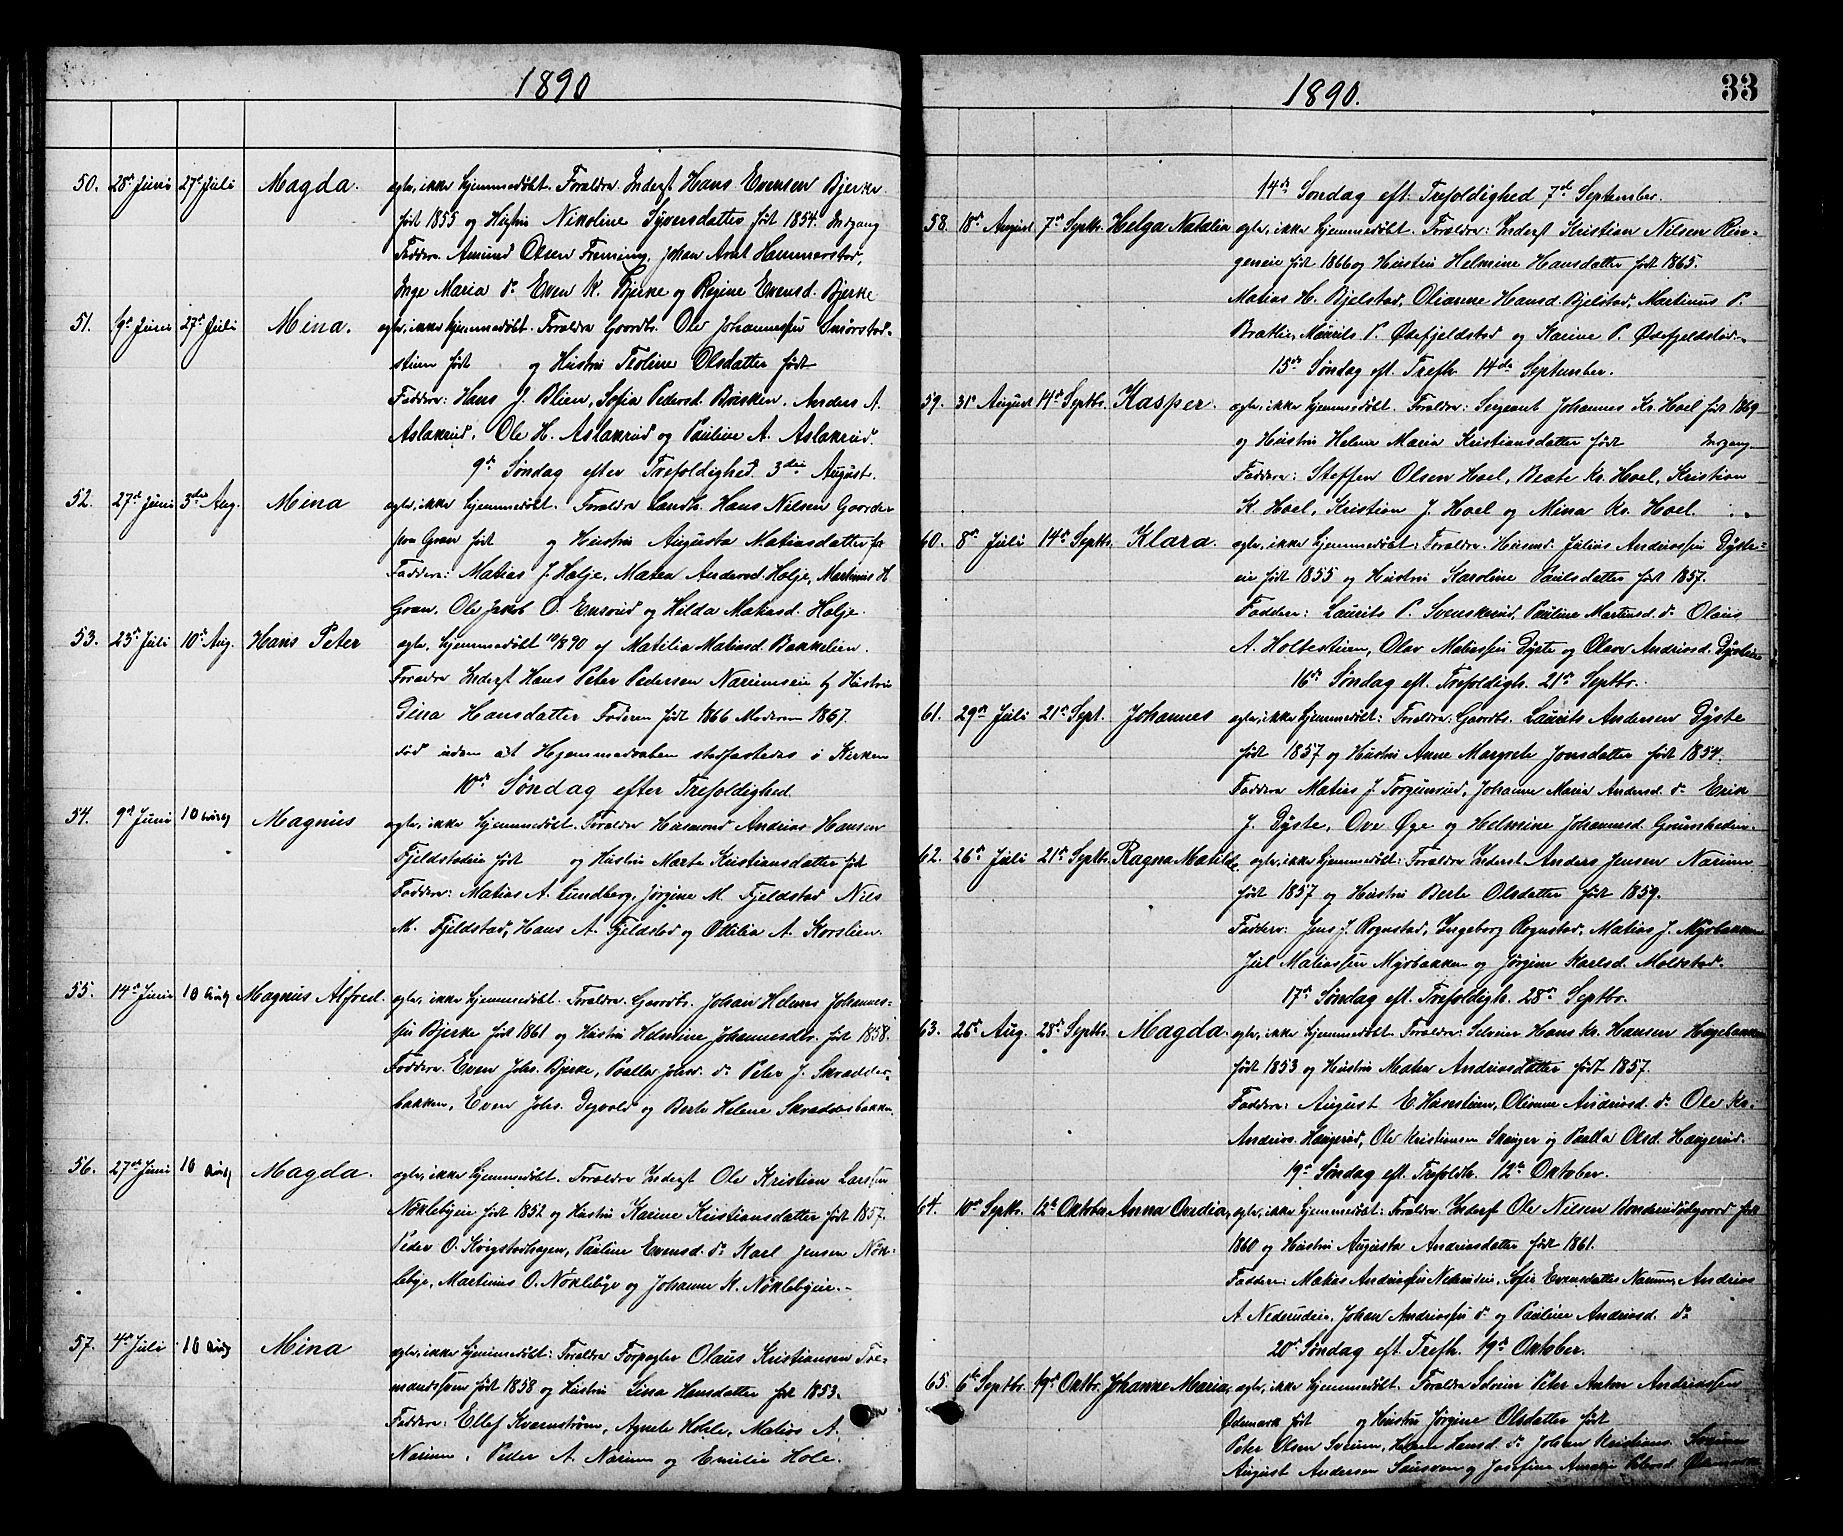 1890
50. 28de Juni 27de Juli Magda. ægte, ikke hjemmedøbt. Forældre Inderst Hans Evensen Bjerke
født 1855 og Hustru Nikoline Syversdatter født 1854. Indgang
Faddere. Amund Olsen Fremming, Johan Arnt Hammerstad,
Inge Maria do Even K. Bjerke og Regine Evensd. Bjerke
51. 19de Juni 27de Juli Mina. ægte, ikke hjemmedøbt. Forældre Gaardbr. Ole Johannessen Smørstad-
stuen født og Hustru Teoline Olsdatter født
Faddere: Hans J. Blien, Sofia Pedersd. Brisken, Anders A.
Aslakrud, Ole H. Aslakrud og Pauline A. Aslakrud.
9de Søndag efter Trefoldighed. 3die August.
52. 27de Juni 3die Aug. Mina ægte, ikke hjemmedøbt. Forældre Landh. Hans Nilsen Gaarder
fra Gran født og Hustru Augusta Matiasdatter fø
Faddere: Matias J. Holje, Maren Andersd. Holje, Martinus H.
Gran, Ole Jakob O. Enrud og Hilda Matiasd. Holje.
53. 23de Juli 10de Aug. Hans Peter ægte, hjemmedøbt 10/8 90 af Matilia Matiasd. Bakkelien.
Forældre Inderst Hans Peter Pedersen Narumseie og Hustru
Gina Hansdatter Faderen født 1866 Moderen 1867.
død uden at Hjemmedaaben stadfæstedes i Kirken
10de Søndag efter Trefoldighed.
54. 9de Juni 10 Aug Magnus ægte, ikke hjemmedøbt. Forældre Husmand Andreas Hansen
Fjeldstadeie født og Hustru Marte Kristiansdatter født
Faddere: Matias A. Lundberg, Jørgine M. Fjeldstad Nils
M. Fjeldstad, Hans A. Fjeldstad og Ottilia A. Korslien.
55. 14de Juni 10 Aug Magnus Alfred. ægte, ikke hjemmedøbt. Forældre. Gaardbr. Johan Helmer Johannes-
sen Bjerke født 1861 og Hustru Helmine Johannesdtr. født 1858.
Faddere. Even Johs. Bjerke, Paulla Johsd. do Peter J. Skrædder-
bakken, Even Johs. Degvold og Berte Helene Skrædderbakken.
56. 27de Juni 10 Aug Magda. ægte, ikke hjemmedøbt. Forældre Inderst Ole Kristian Larssen
Nøklebyeie født 1852 og Hustru Karine Kristiansdatter født 1857.
Peder O. Kongstadhagen, Pauline Evensd. do Karl Jensen Nøk-
lebye, Martinus O. Nøklebye og Johanne K. Nøklebyeie.
57. 4de Juli 10 Aug Mina ægte, ikke hjemmedøbt: Forældre Forpagter Olaus Kristiansen
født 1858 og Hustru Lina Hansdatter født 1853.
Faddere: Ellef Kværnstrøm, Agnete Hohle, Matias A.
Narum, Peder A. Narum og Emilie Hole.
1890.
33
14de Søndag eft. Trefoldighed 7de September.
58. 18de August 7de Septbr. Helga Natalia ægte, ikke hjemmedøbt. Forældre: Inderst Kristian Nilsen Rin-
geneie født 1866 og Hustru Helmine Hansdatter født 1865.
Matias H. Bjelstad, Olianne Hansd. Bjelstad, Martinus P.
Bratlie, Maurits P. Ødefjeldstad og Karine P. Ødefjeldstad.
15de Søndag eft. Trefh. 14de September.
59. 31te August 14de Septbr. Kasper. ægte, ikke hjemmedøbt. Forældre: Sergeant Johannes Kr. Hoel født 1869
og Hustru Helene Maria Kristiansdatter født Indgang
Faddere: Steffen Olsen Hoel, Beate Kr. Hoel, Kristian
K. Hoel, Kristian J. Hoel og Mina Kr. Hoel.
60. 8de Juli 14de Septbr. Klara. ægte, ikke hjemmedøbt: Forældre. Husmd. Julius Andreassen Dyste-
eie født 1855 og Hustru Karoline Paulsdatter født 1857.
Faddere: Laurits P. Svenskrud, Pauline Martinsd. do Olaus
A. Holtestuen, Olav Matiassen Dyste og Olava Andreasd. Dysteeie
16de Søndag eft. Trefoldigh. 21de Septbr.
61. 29de Juli 21de Sept. Johannes ægte, ikke hjemmedøbt: Forældre: Gaardbr. Laurits Andersen Dyste
født 1857 og Hustru Anne Margrete Jonsdatter født 1854.
Faddere Matias J. Torgunrud, Johanne Maria Andersd. do Erik
J. Dyste, Ove Øge og Helmine Johannesd. Grimsheden.
62. 26de Juli 21de Septbr. Ragna Matilde, ægte, ikke hjemmedøbt: Forældre Inderst Anders Jensen Narum
født 1857 og Hustru Berte Olsdatter født 1859.
Faddere: Jens J. Rognstad, Ingeborg Rognstad, Matias J. Myrbakken
Juil Matiassen Myrbakken og Jørgine Karlsd. Molstad.
17de Søndag eft. Trefoldigh. 28de Septbr.
63. 26de Aug. 28de Septbr. Magda. ægte, ikke hjemmedøbt. Forældre: Seleier Hans Kr. Hansen Hagebakken
født 1853 og Hustru Maren Andreasdatter født 1857.
Faddere: August E. Havestuen, Olianne Andreasd. do Ole Kr.
Andreas. Haugerud, Ole Kristiansen Skanger og Paulla Olsd. Haugerud.
19de Søndag eft. Trefoldh. 12te Oktober.
64. 10de Septbr. 12te Oktober Anna Ovidia, ægte, ikke hjemmedøbt: Forældre Inderst Ole Nilsen født
1860 og Hustru Augusta Andreasdatter født 1861.
Faddere: Matias Andreassen Nederudeie, Sofie Evensdatter Narum, Andreas
A. Nederudeie, Johan Andreassen do og Pauline Andreasd. do
20de Søndag eft. Trefh. 19de Oktober.
65. 6te Septbr. 19de Oktbr. Johanne Maria, ægte, ikke hjemmedøbt. Forældre Seleier Peter Anton Andreassen
Ødemark født og Hustru Jørgine Olsdatter født
Peter Olsen Sverum, Helene Hansd. do Johan Kristians.
August Andersen og Josefine Amalie Pedersd. Ødemark